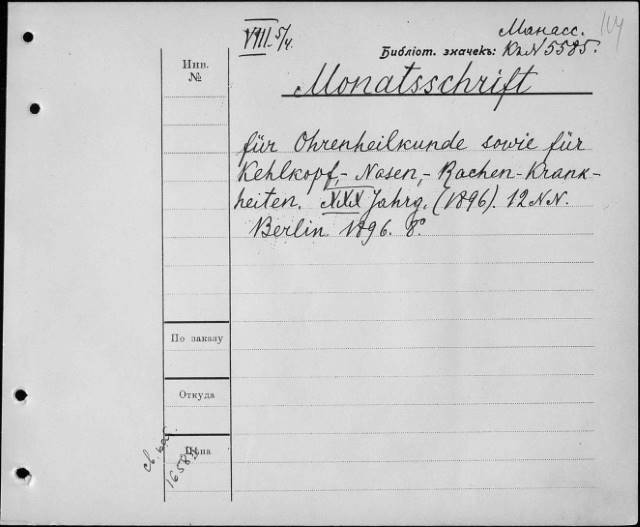 VIII. 5/4.
Манасс.
Библіот. значекъ: Кл N 5585.
Инв.
№
Monatsschrift
für Ohrenheilkunde sowie für
Kehlkopf,- Nasen,- Rachen-Krank-
heiten. XXX Jahrg. (1896). 12 NN.
Berlin 1896. 8°.
По заказу
Откуда
Цѣна